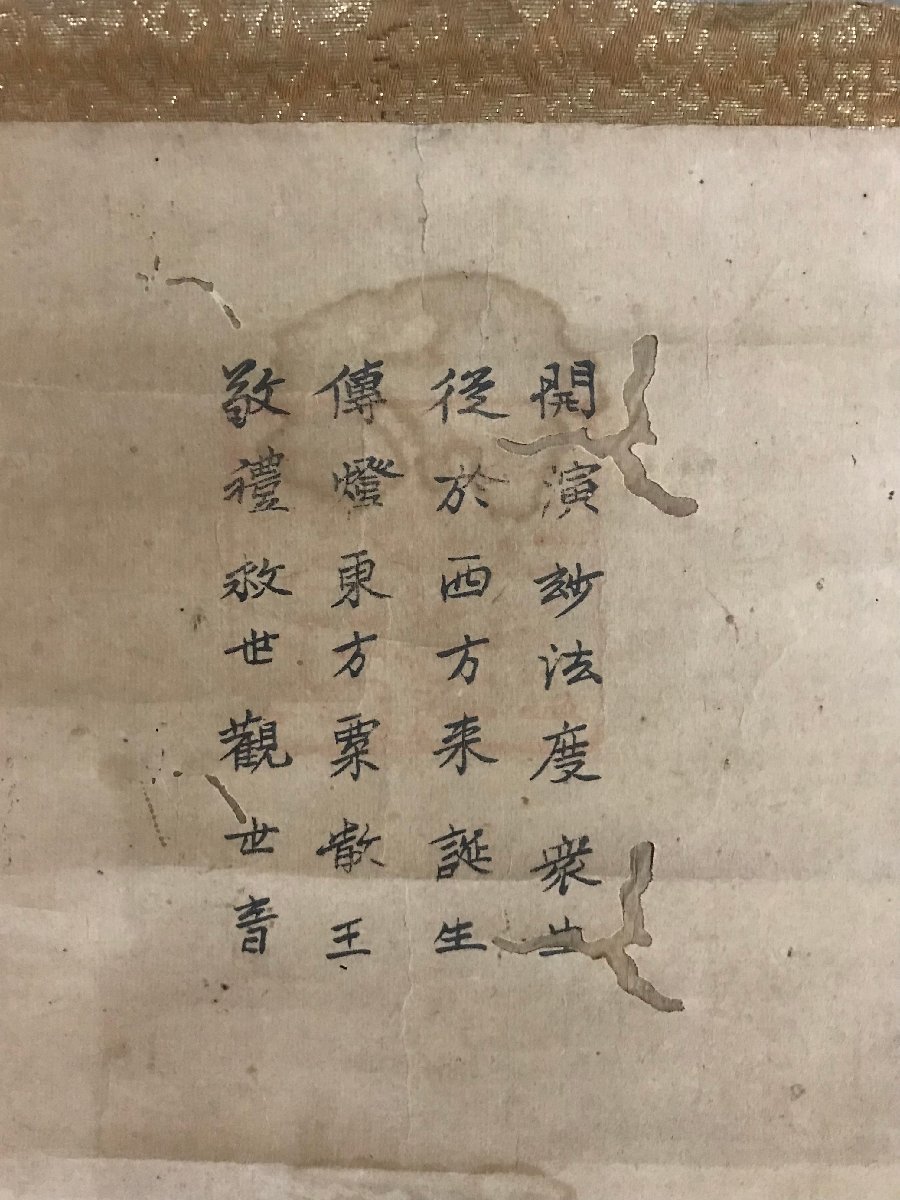 敬禮救世觀世音
傳燈東方粟散王
從於西方来誕生
開演玅法度衆生